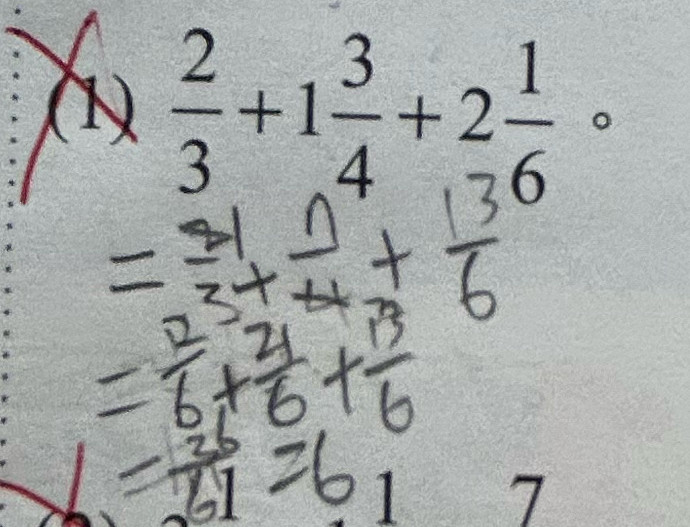 (1) 2/3 + 1 3/4 + 2 1/6 。
= /3 + 7/4 + 13/6
= 12/6 + 21/6 + 13/6
= 26/6 = 6
1 1 7